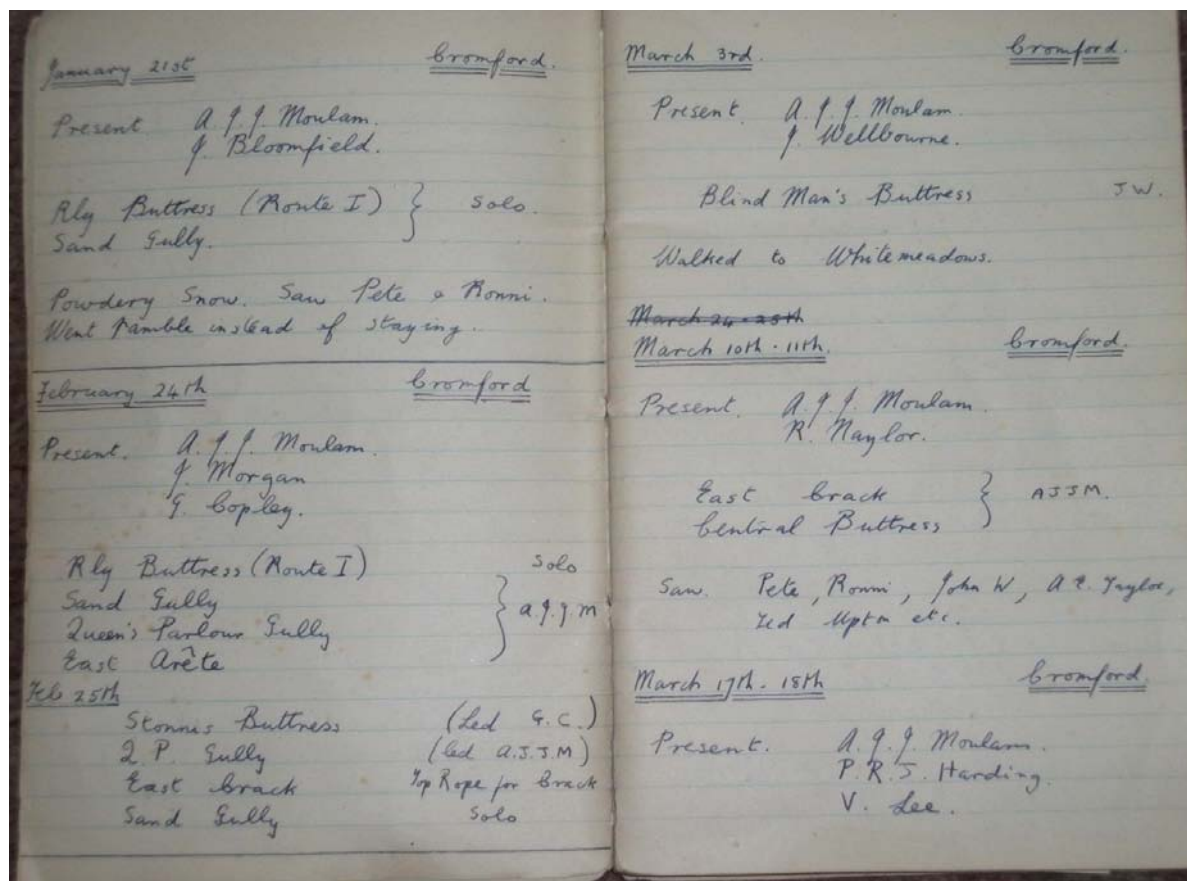 January 21st Cromford.
Present. A. J. J. Moulam.
J. Bloomfield.
Rly Buttress (Route I) } Solo.
Sand Gully.
Powdery Snow. Saw Pete & Ronni.
Went ramble instead of staying.
February 24th Cromford
Present. A. J. J. Moulam.
J. Morgan
G. Copley.
Rly Buttress (Route I) Solo
Sand Gully
Queen's Parlour Gully } A.J.J.M
East Arête
Feb 25th
Stonnis Buttress (Led G.C.)
Q.P. Gully (led A.J.J.M)
East Crack Top Rope for Crack
Sand Gully Solo
March 3rd. Cromford.
Present. A. J. J. Moulam.
J. Wellbourne.
Blind Man's Buttress J W.
Walked to Whitemeadows.
March 24 - 25th
March 10th - 11th. Cromford.
Present. A. J. J. Moulam.
R. Naylor.
East Crack } AJJM.
Central Buttress
Saw. Pete, Ronni, John W, A. E. Taylor,
Ted Upton etc.
March 17th - 18th Cromford.
Present. A. J. J. Moulam.
P. R. J. Harding.
V. Lee.